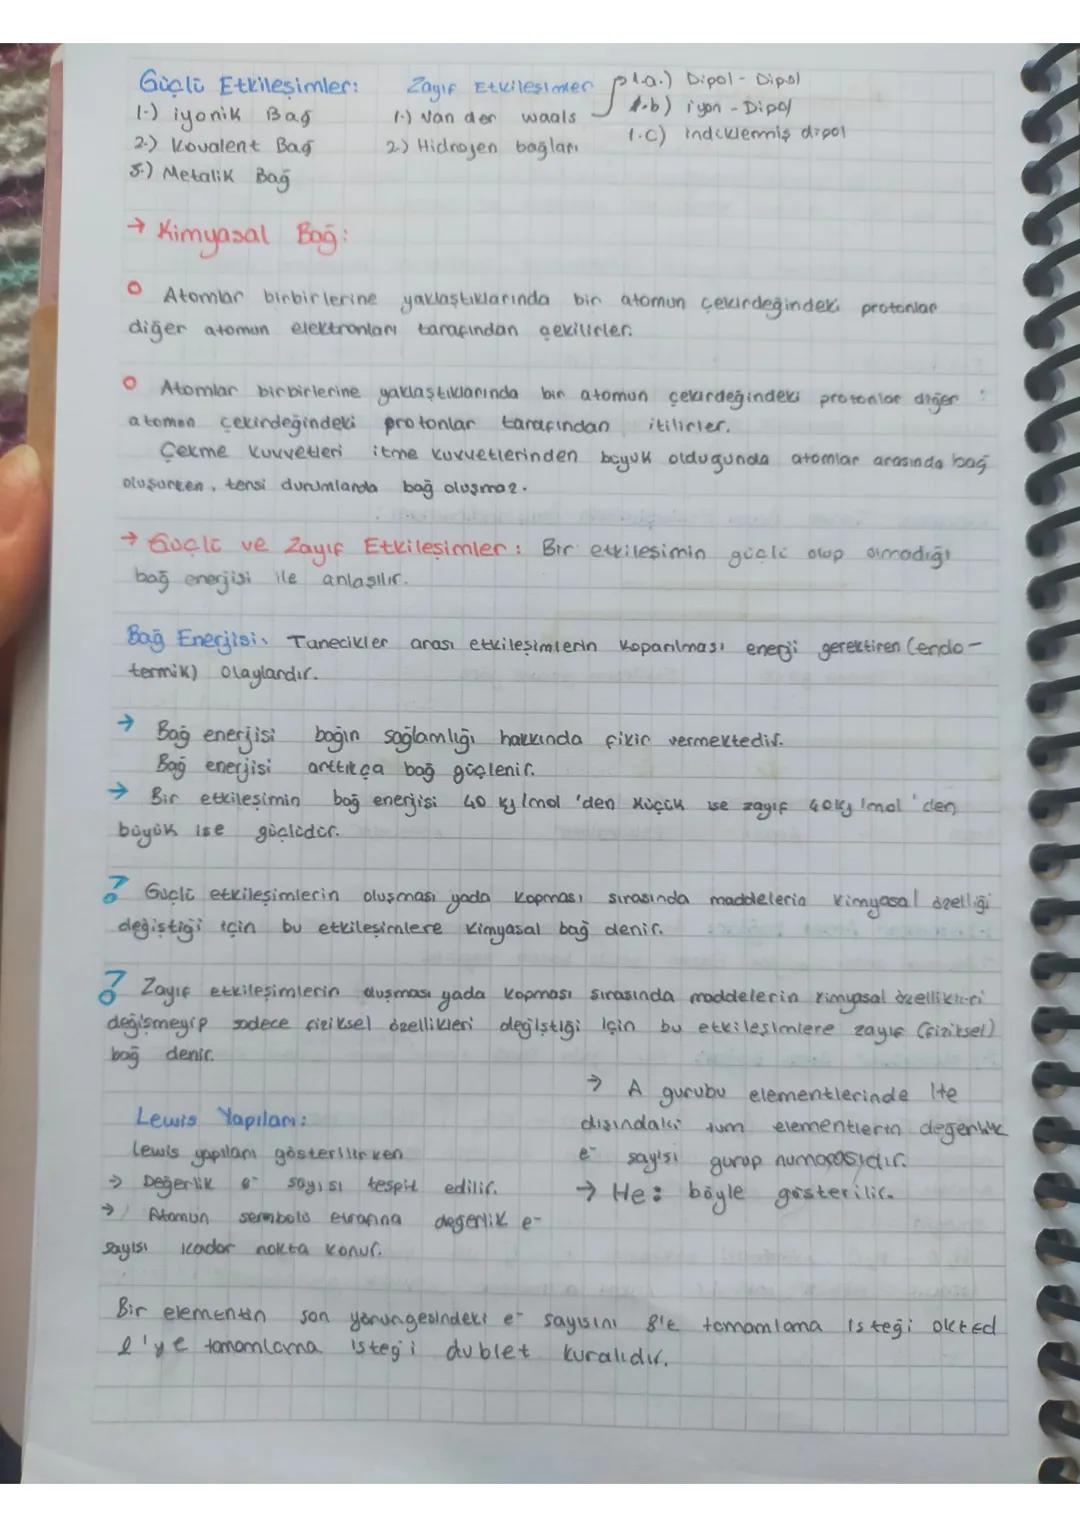 Güçlü Etkileşimler:
1.) iyonik Bağ
2.) Kovalent Bağ
3.) Metalik Bağ
Zayıf Etkileşimler
1.) Van der waals
2.) Hidrojen bağları
1.a.) Dipol - Dipol
1.b) iyon - Dipol
1.c) indiklenmiş dipol
→ Kimyasal Bağ:
Atomlar birbirlerine yaklaştıklarında bir atomun çekirdeğindeki protonlar
diğer atomun elektronları tarafından çekilirler.
Atomlar birbirlerine yaklaştıklarında bir atomun çekirdeğindeki protonlar diğer
atomun çekirdeğindeki protonlar tarafından itilirler.
Çekme kuvvetleri itme kuvvetlerinden büyük olduğunda atomlar arasında bağ
oluşurken, tersi durumlarda bağ oluşmaz.
→ Güçlü ve Zayıf Etkileşimler: Bir etkileşimin güçlü olup olmadığı
bağ enerjisi ile anlaşılır.
Bağ Enerjisi: Tanecikler arası etkileşimlerin koparılması enerji gerektiren (endo-
termik) olaylardır.
→ Bağ enerjisi bağın sağlamlığı hakkında fikir vermektedir.
Bağ enerjisi arttıkça bağ güçlenir.
→ Bir etkileşimin bağ enerjisi 40 kj/mol 'den küçük ise zayıf 40kj/mol 'den
büyük ise güçlüdür.
? Güçlü etkileşimlerin oluşması yada kopması sırasında maddelerin kimyasal özelliği
değiştiği için bu etkileşimlere kimyasal bağ denir.
? Zayıf etkileşimlerin oluşması yada kopması sırasında maddelerin kimyasal özellikleri
değişmeyip sadece fiziksel özellikleri değiştiği için bu etkileşimlere zayıf (fiziksel)
bağ denir.
Lewis Yapıları:
Lewis yapıları gösterilirken
→ Değerlik e⁻ sayısı tespit edilir.
→ Atomun sembolü etrafına değerlik e-
sayısı kadar nokta konur.
→ A gurubu elementlerinde He
dışındaki tüm elementlerin değerlik
e⁻ sayısı gurup numarasıdır.
→ He: böyle gösterilir.
Bir elementin son yörüngesindeki e⁻ sayısını 8'e tamamlama isteği okted
2'ye tamamlama isteği dublet kuralıdır.